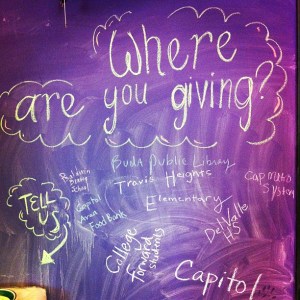 Where
are you giving?
Buda Public Library
Travis Heights
Elementary
TELL
US
School
Capitol
Area
Food Bank
College
Forward
students
Del Valle
HS
Cap Metro
System
Capitol